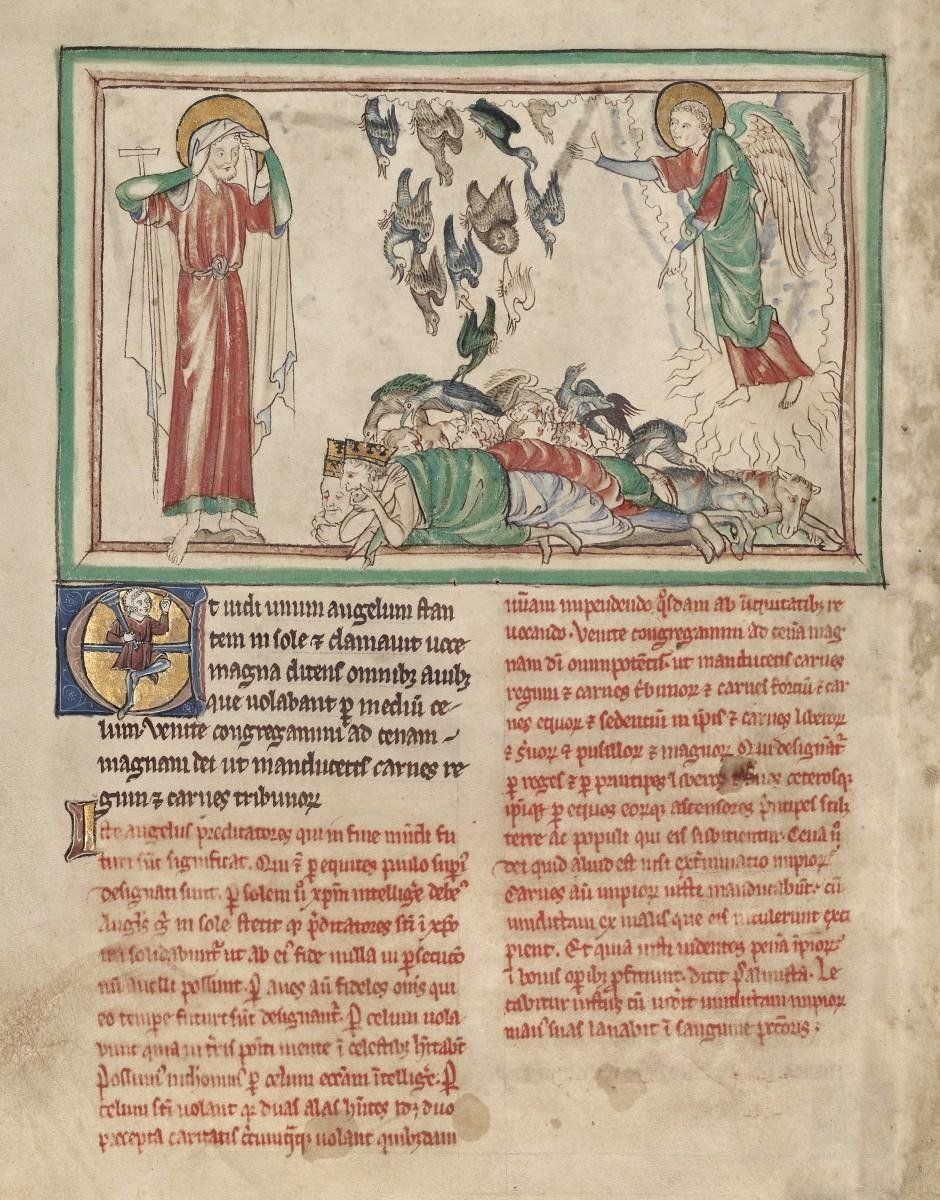 Et uidi unum angelum stan
tem in sole ⁊ clamauit uoce
magna dicens omnibꝫ auibꝫ
que uolabant ꝑ mediū ce-
lum. Venite congregamini ad cenam
magnam dei ut manducetis carnes re
gum ⁊ carnes tribunoꝝ
Iste angelus predicatores qui in fine mūdi fu
turi sūt significat. Qui ⁊ ꝑ equites paulo
designati sunt. ꝑ solem xp̄m intellige debeꝰ
in sole stetit q̇ p̄dicatores sc̄i ī xp̄o
ita solidabunt᷑ ut ab eiꝰ fide nulla ui ꝑsecutō
nū auelli possunt. ꝑ aues aū fideles oīns qui
eo tempe futuri sūt designant᷑. ꝑ celum uola
bunt quia in t̄ris poīti mente ī celestibꝫ
Possumꝰ nichominꝰ ꝑ celum eccāꝫ ītellige. ꝑ
celum sc̄i uolant qͥ duas alas hn̄tes duo
precepta caritatis uolant quibꝫdam
ueniam inpendendo qͦsdam ab īiquitatibꝫ re
uocando. Venite congregamini ad cenā mag
nam dī omnipotētis. ut manducetis carnes
regum ⁊ carnes tͥbunoꝝ ⁊ carnes fortiū ⁊ car
nes equoꝝ ⁊ sedentiū in ip̄is ⁊ carnes liberoꝝ
⁊ suoꝝ ⁊ pusilloꝝ ⁊ magnoꝝ. Qui designāt᷑
ꝑ reges ⁊ ꝑ principes liberos ⁊ suos ceterosqꝫ
ip̄iqꝫ ꝑ equos eorqꝫ ascensores p̄ncipes
terre ac populi qui eis subicientur. Cena ū
dei quid aliud est nisi ext̄minatio impioꝝ
Carnes aū impioꝝ iusti manducabūt. cū
uindictam ex malis que eis intulerunt exci
pient. Et quia iusti uidentes penā īpioꝝ
ī bonis oꝑibꝫ ꝓficiunt. dicit psalmista. Le
tabitur iustꝰ cū uid̄it uindictam impioꝝ
manꝰ suas lauabit ī sanguine pctōris.